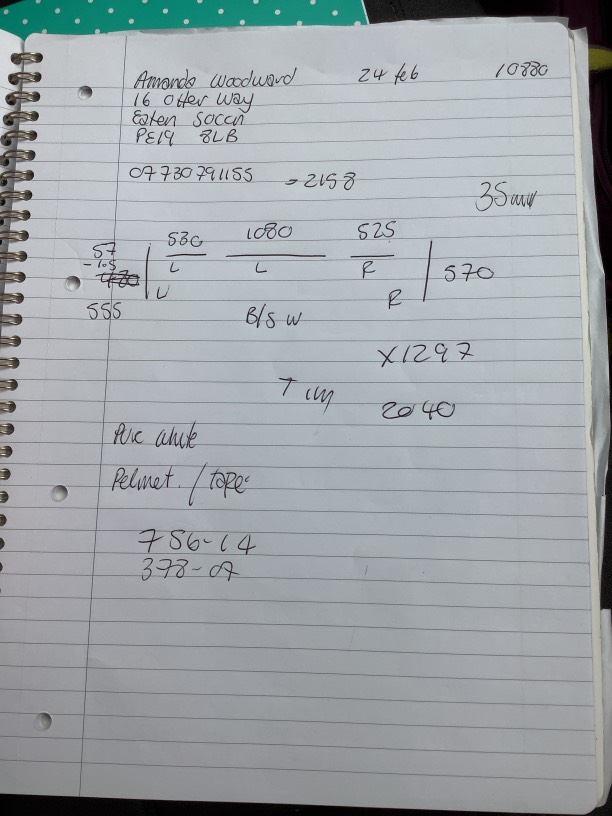 Amanda Woodward 24 feb 10880
16 Otter Way
Eaten Soccn
PE19 8LB
07730791155 = 2158
35mm
530 1080 525
57
-1.5
L L R 570
L R
555
B/S W
X1297
T
2040
PVC
Pelmet. / tape
756-14
378-07